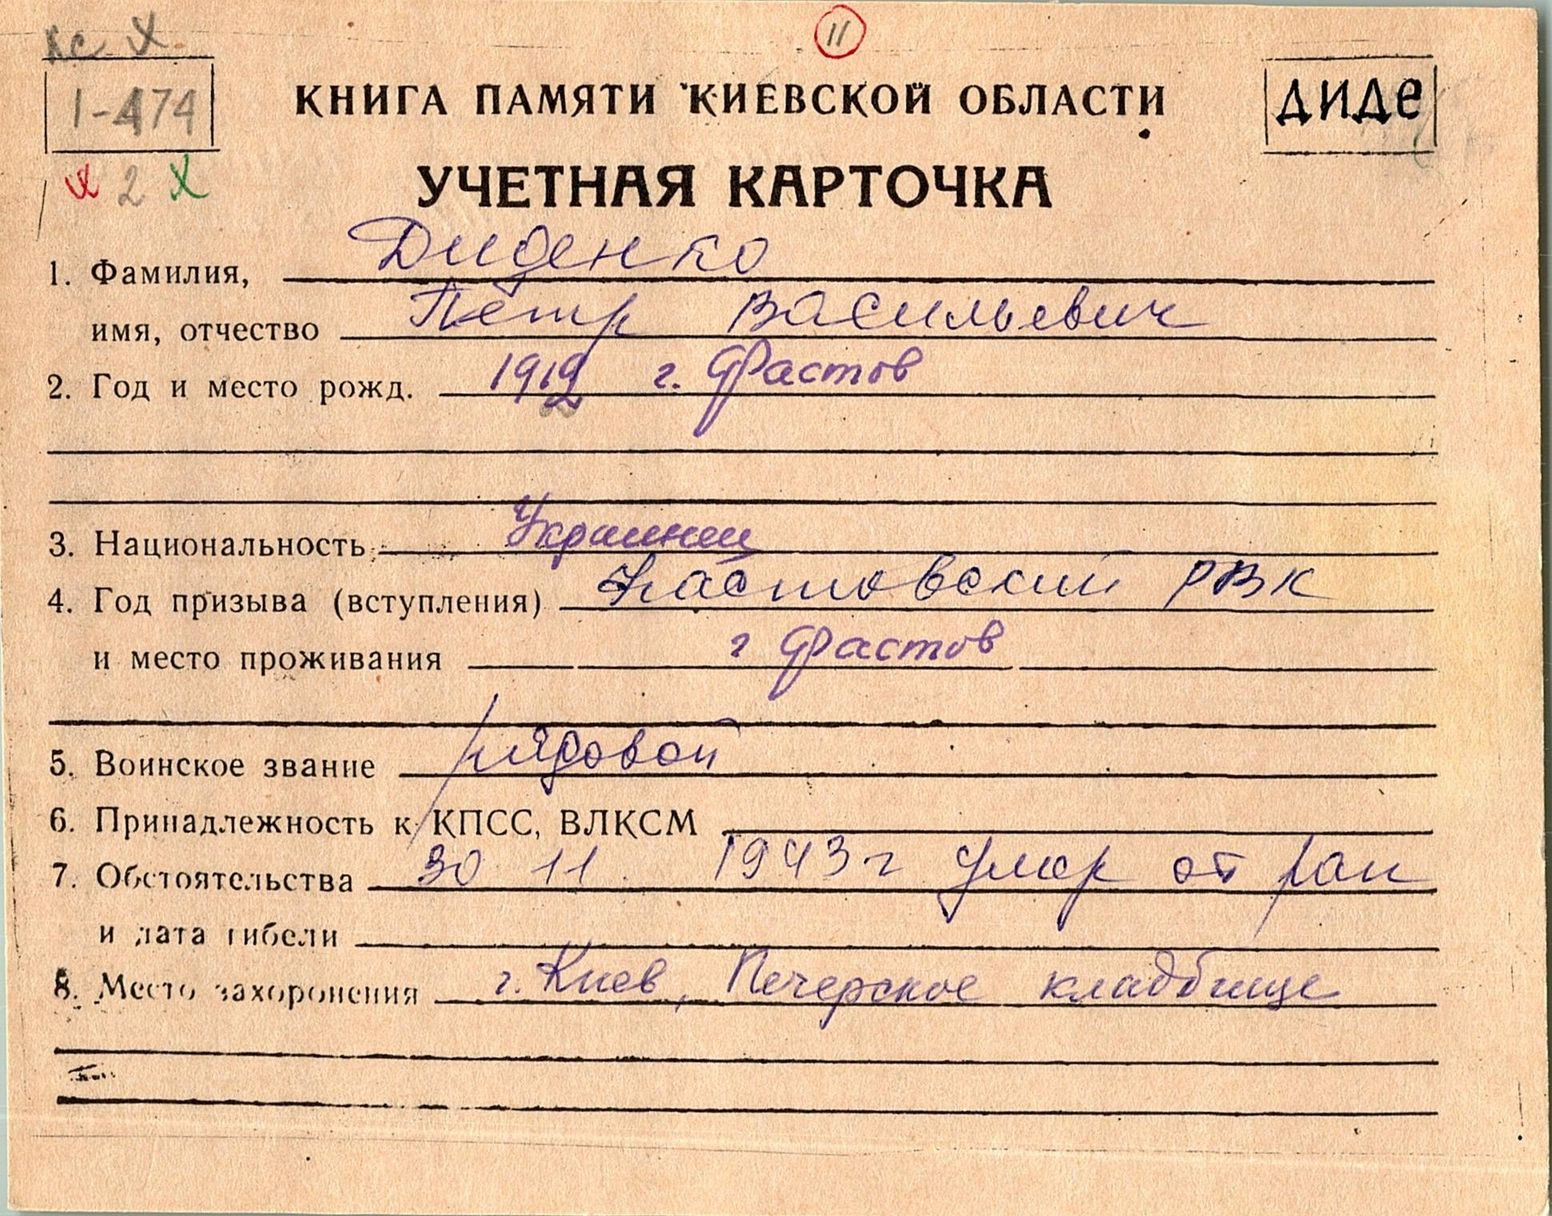 КС X
11
1-474
КНИГА ПАМЯТИ КИЕВСКОЙ ОБЛАСТИ
ДИДЕ
X 2 X
УЧЕТНАЯ КАРТОЧКА
1. Фамилия, Диденко
имя, отчество Петр Васильевич
2. Год и место рожд. 1912 г. Фастов
3. Национальность Украинец
4. Год призыва (вступления) Фастовский РВК
и место проживания г Фастов
5. Воинское звание рядовой
6. Принадлежность к КПСС, ВЛКСМ
7. Обстоятельства 30 11. 1943 г умер от ран
и дата гибели
8. Место захоронения г. Киев, Печерское кладбище